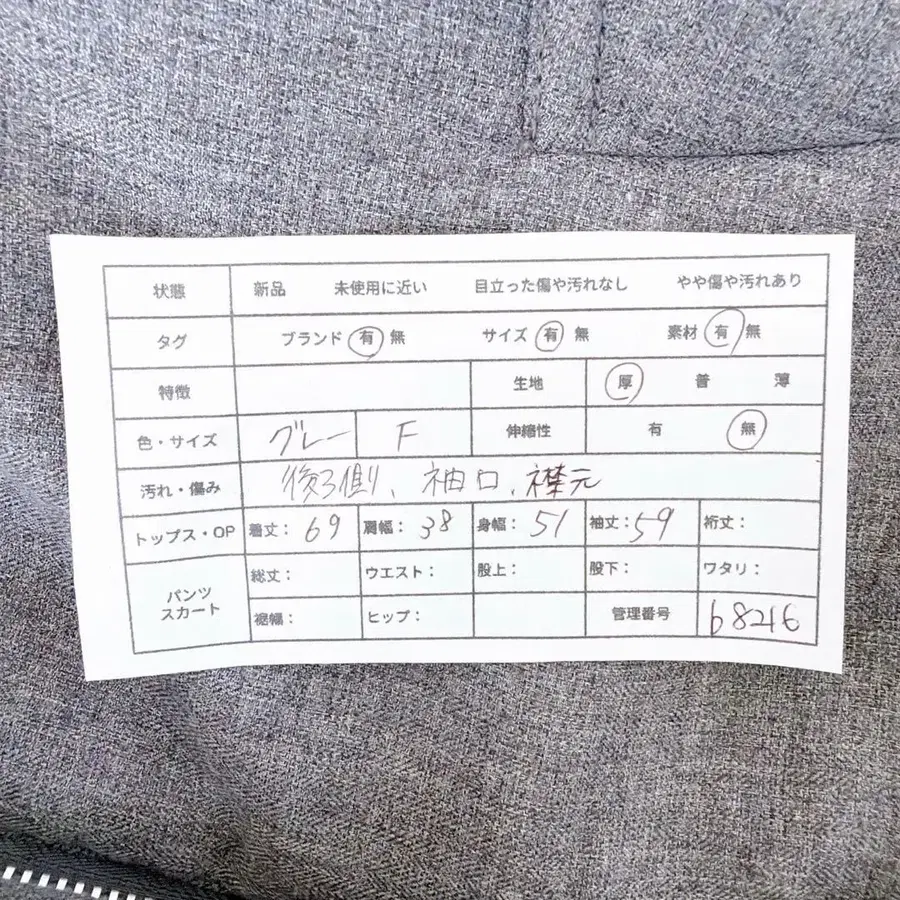 状態 新品 未使用に近い 目立った傷や汚れなし やや傷や汚れあり
タグ ブランド 有 無 サイズ 有 無 素材 有 無
特徴 生地 厚 普 薄
色・サイズ グレー F 伸縮性 有 無
汚れ・傷み 後ろ側、袖口、襟元
トップス・OP 着丈：69 肩幅：38 身幅：51 袖丈：59 裄丈：
パンツ スカート 総丈： ウエスト： 股上： 股下： ワタリ：
裾幅： ヒップ： 管理番号 68216